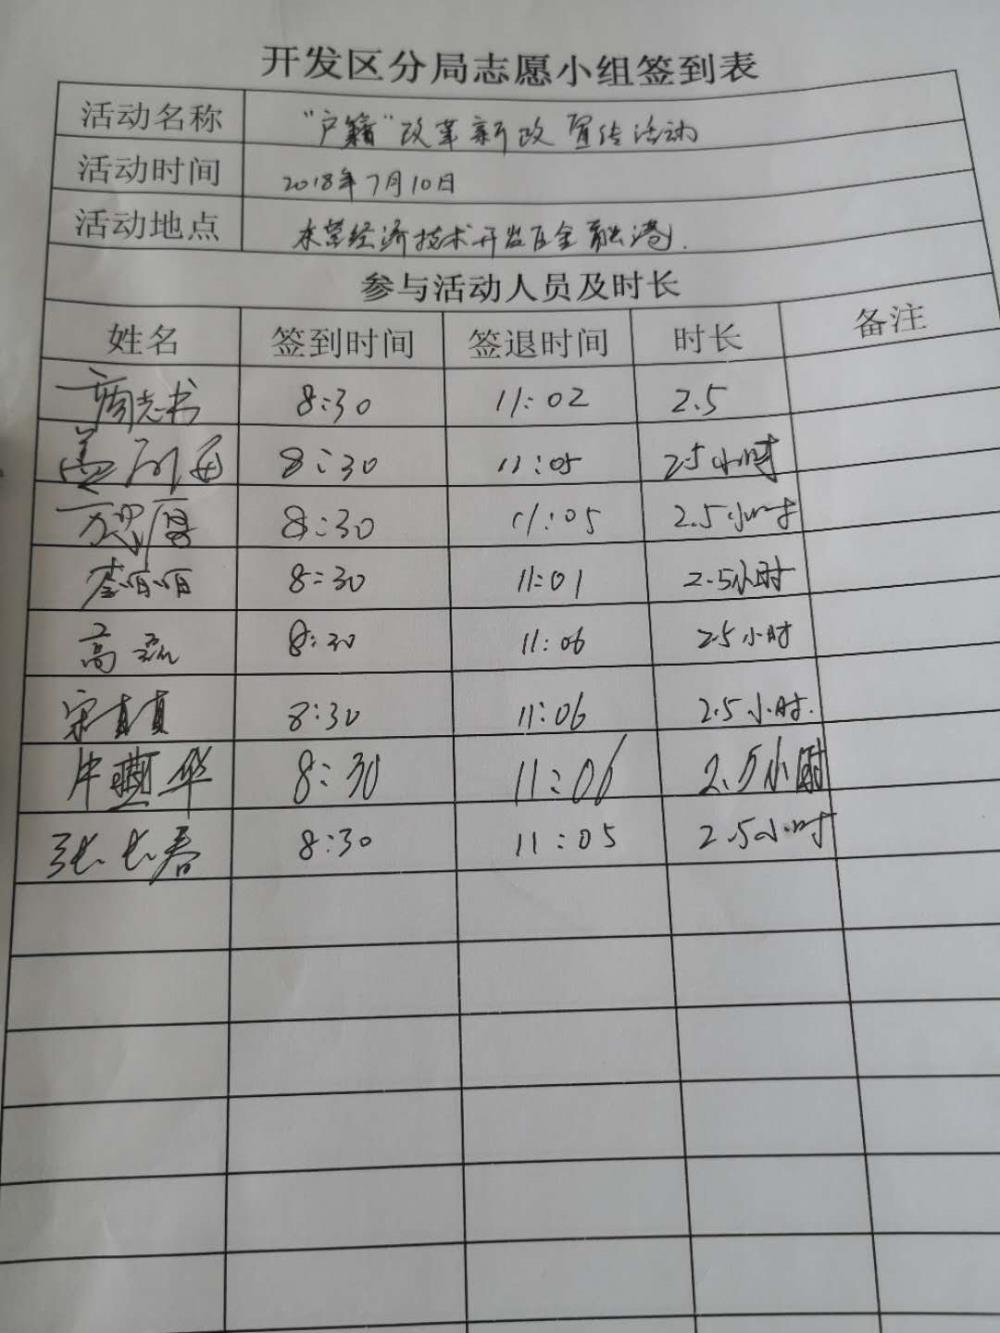 开发区分局志愿小组签到表
活动名称 "户籍"改革新政宣传活动
活动时间 2018年7月10日
活动地点 本营经济技术开发区金融港.
参与活动人员及时长
姓名 签到时间 签退时间 时长 备注
周志书 8:30 11:02 2.5
8:30 11:05 2.5小时
8:30 11:05 2.5小时
李娟娟 8:30 11:01 2.5小时
高 8:30 11:06 2.5小时
宋真真 8:30 11:06 2.5小时.
8:30 11:06 2.5小时
张长春 8:30 11:05 2.5小时